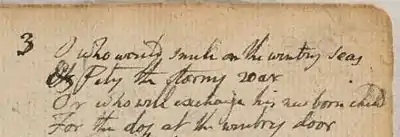 3
O who would smile on the wintry seas
& Pity the stormy roar
Or who will exchange his new born child
For the dog at the wintry door